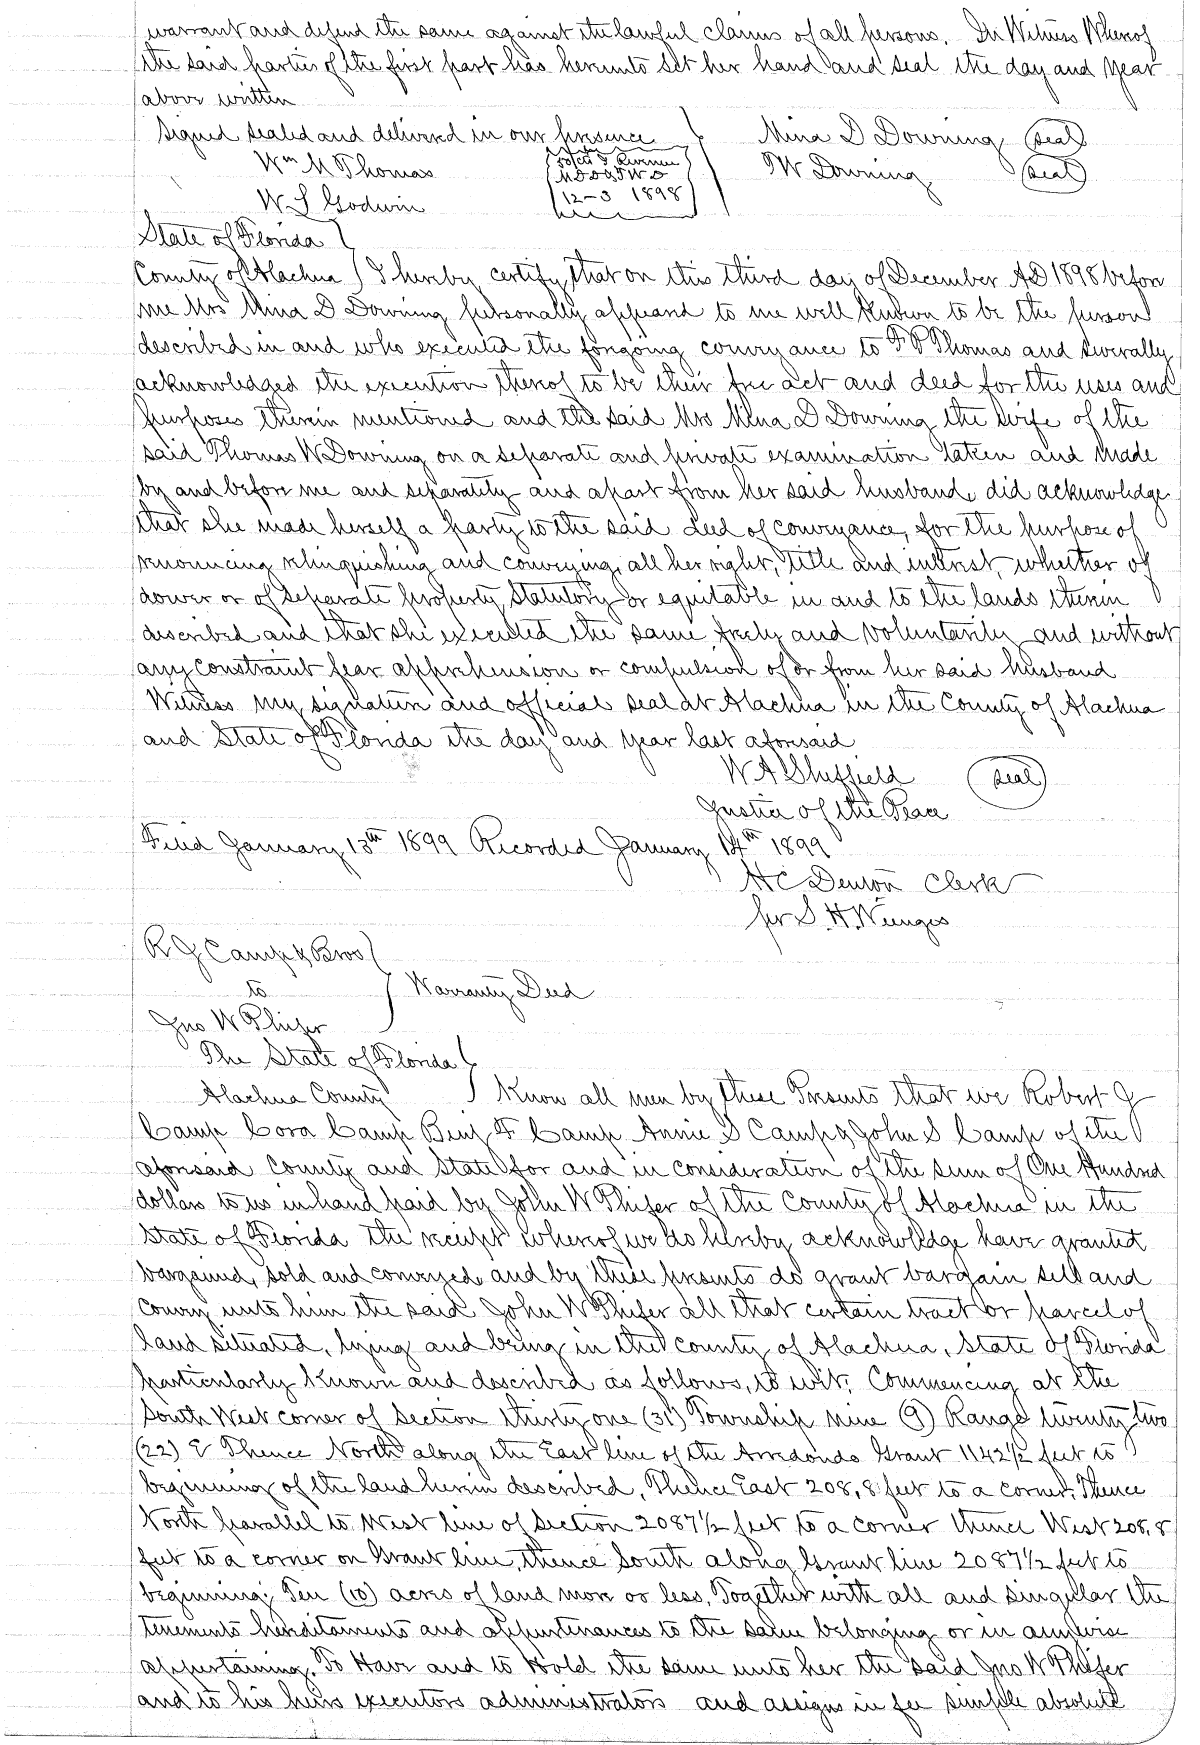 warrant and defend the same against the lawful claims of all persons. In Witness Whereof
the said parties of the first part has hereunto set her hand and seal the day and year
above written
Signed sealed and delivered in our presence
Mina D Downing (seal)
Wm M Thomas
50 cts I Revenue
TW Downing (seal)
12-3 1898
W S Godwin
State of Florida
County of Alachua I hereby certify that on this third day of December AD 1898 before
me Mrs Mina D Downing personally appeared to me well known to be the person
described in and who executed the foregoing conveyance to F P Thomas and severally
acknowledged the execution thereof to be their free act and deed for the uses and
purposes therein mentioned and the said Mrs Mina D Downing the wife of the
said Thomas W Downing on a separate and private examination taken and made
by and before me and separately and apart from her said husband, did acknowledge
that she made herself a party to the said deed of conveyance, for the purpose of
renouncing relinquishing and conveying, all her right, title and interest, whether of
dower or of separate property, statutory or equitable in and to the lands therein
described and that she executed the same freely and voluntarily and without
any constraint fear apprehension or compulsion of or from her said husband
Witness my signature and official seal at Alachua in the County of Alachua
and State of Florida the day and year last aforesaid
W A Sheffield (seal)
Justice of the Peace
Filed January 13th 1899 Recorded January 14th 1899
H C Denton Clerk
per S. H. Wienges
R G Camp & Bros
to
Warranty Deed
Jno W Phifer
The State of Florida
Alachua County Know all men by these Presents that we Robert G
Camp Cora Camp Benj F Camp Annie S Camp & John S Camp of the
aforesaid County and State for and in consideration of the sum of One Hundred
dollars to us in hand paid by John W Phifer of the County of Alachua in the
State of Florida the receipt whereof we do hereby acknowledge have granted
bargained, sold and conveyed, and by these presents do grant bargain sell and
convey unto him the said John W Phifer all that certain tract or parcel of
land situated, lying and being in the County of Alachua, State of Florida
particularly known and described as follows, to wit; Commencing at the
South West corner of Section thirty one (31) Township nine (9) Range twenty two
(22) E Thence North along the East line of the Arredondo Grant 1142 1/2 feet to
beginning of the land herein described, Thence East 208,8 feet to a corner, Thence
North parallel to West line of Section 2087 1/2 feet to a corner thence West 208,8
feet to a corner on Grant line, thence South along Grant line 2087 1/2 feet to
beginning; Ten (10) acres of land more or less, Together with all and singular the
tenements hereditaments and appurtenances to the same belonging or in anywise
appertaining. To Have and to Hold the same unto her the said Jno W Phifer
and to his heirs executors administrators and assigns in fee simple absolute